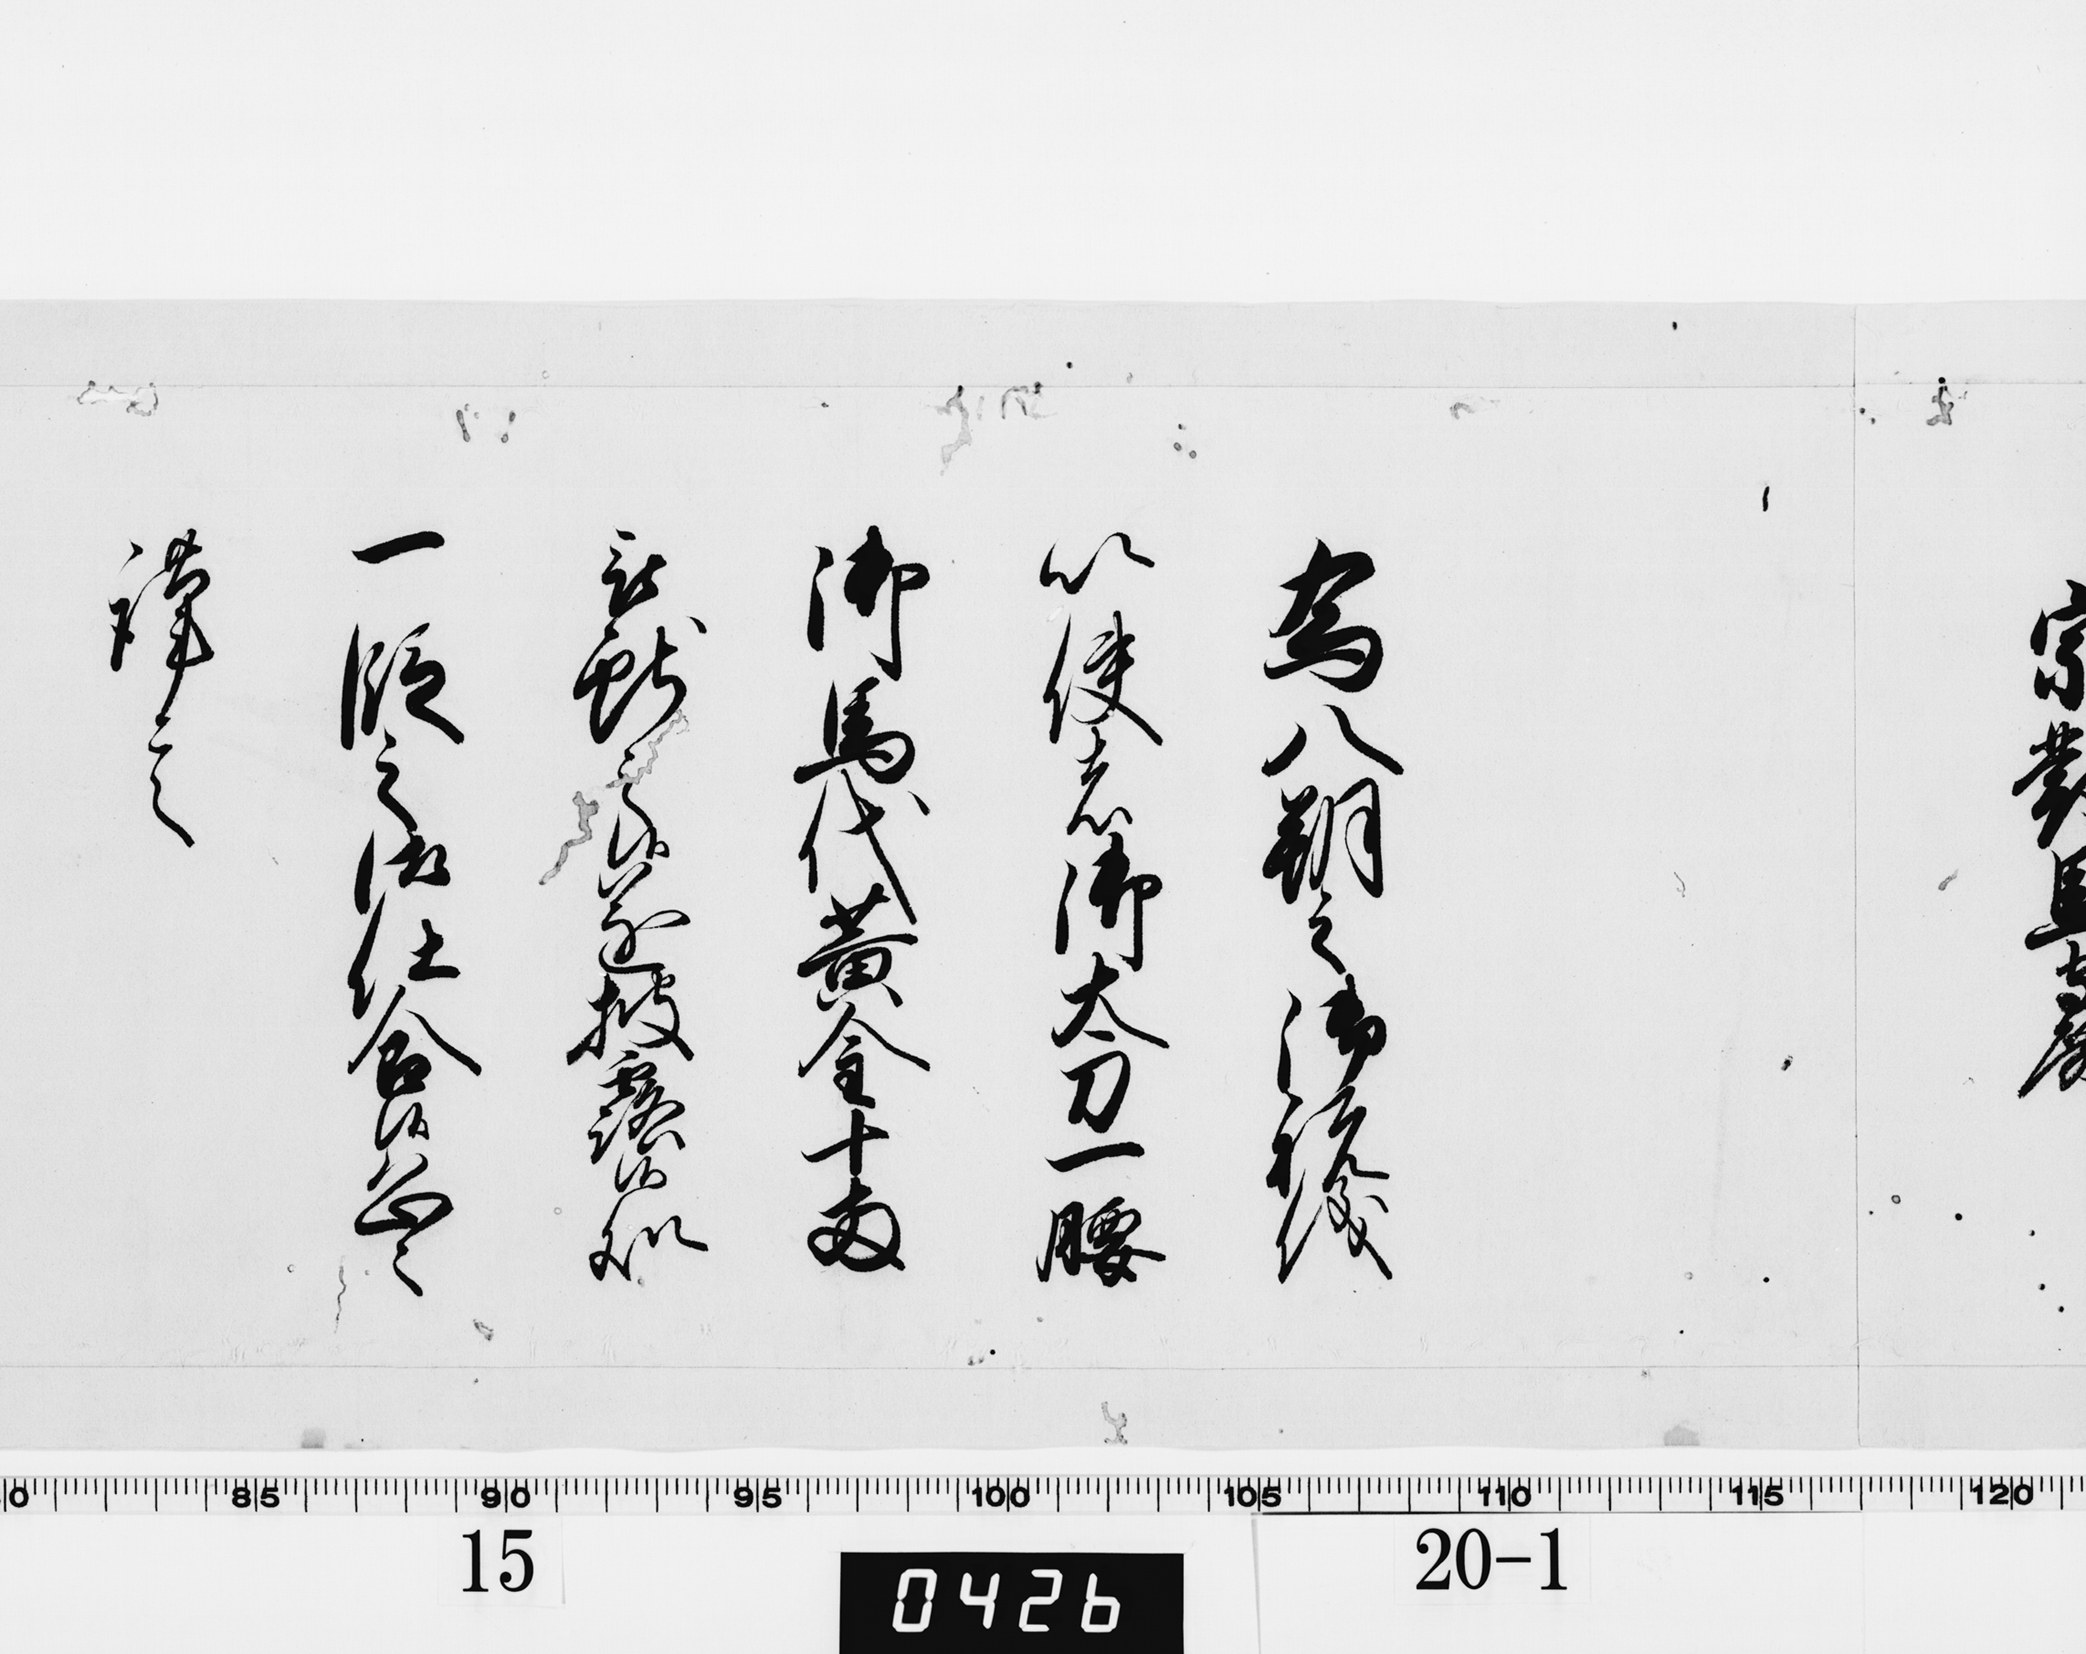 宗對馬守殿
為八朔之御祝儀
以使者御太刀一腰
御馬代黄金十両
被獻之候遂披露候処
一段之御仕合候恐々
謹言
85 90 95 100 105 110 115 120
15
20-1
0426